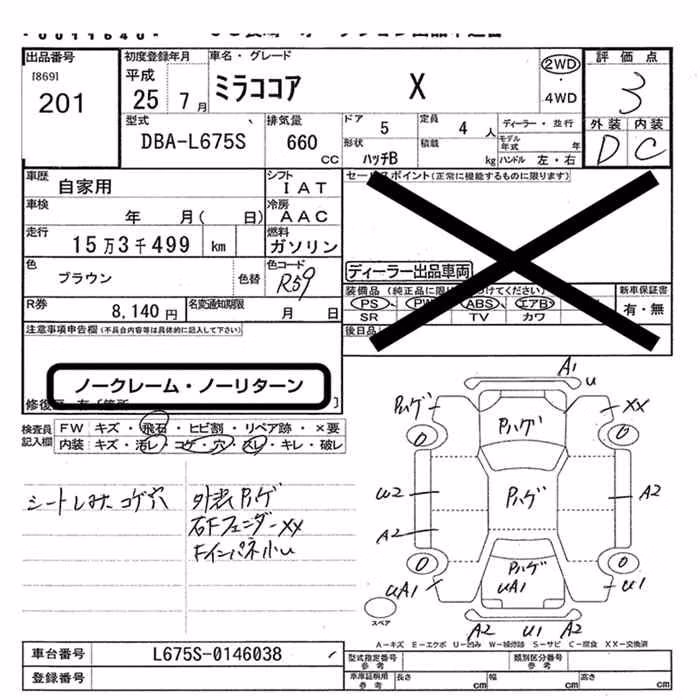 出品番号
[869]
201
初度登録年月
平成
25 7月
車名・グレード
ミラココア X
2WD
・
4WD
評価点
3
外装 内装
D C
型式
DBA-L675S
排気量
660
CC
ドア
5
定員
4 人
形状
ハッチB
積載
kg
ディーラー・並行
モデル年式 年
ハンドル 左・右
車歴
自家用
シフト
IAT
車検
年 月( 日)
冷房
AAC
走行
15万3千499 km
燃料
ガソリン
色
ブラウン
色替
色コード
R59
R券
8,140円
名変通知期限
月 日
セールスポイント(正常に機能するものに限ります)
ディーラー出品車両
装備品(純正品に限り つけてください)
PS PW ABS エアB
SR TV カワ
後日品
新車保証書
有・無
注意事項申告欄(不具合内容等は具体的に記入して下さい)
ノークレーム・ノーリターン
検査員記入欄
FW キズ・飛石・ヒビ割・リペア跡・×要
内装 キズ・汚レ・コゲ・穴・スレ・キレ・破レ
シートしみ、コゲ穴
外装Pハゲ
右FフェンダーXX
Fインパネ小U
A1
U
Pハゲ
Pハゲ
XX
0
0
U2
Pハゲ
A2
A2
0
0
Pハゲ
UA1
UA1
U1
A2 U1 A2
スペア
A-キズ E-エクボ U-凹み W-補修跡 S-サビ C-腐食 XX-交換済
車台番号
L675S-0146038
登録番号
型式指定番号
参考
類別区分番号
参考
車庫証明用
参考
長さ cm
幅 cm
高さ cm